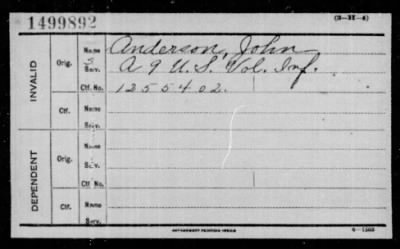 1499892 (3-H-4)
INVALID
Orig. Name Anderson, John
S Serv. A 9 U.S. Vol. Inf.
Ctf. No. 1255402.
Ctf. Name
Serv.
DEPENDENT
Orig. Name
Serv.
Ctf. No.
Ctf. Name
Serv.
GOVERNMENT PRINTING OFFICE